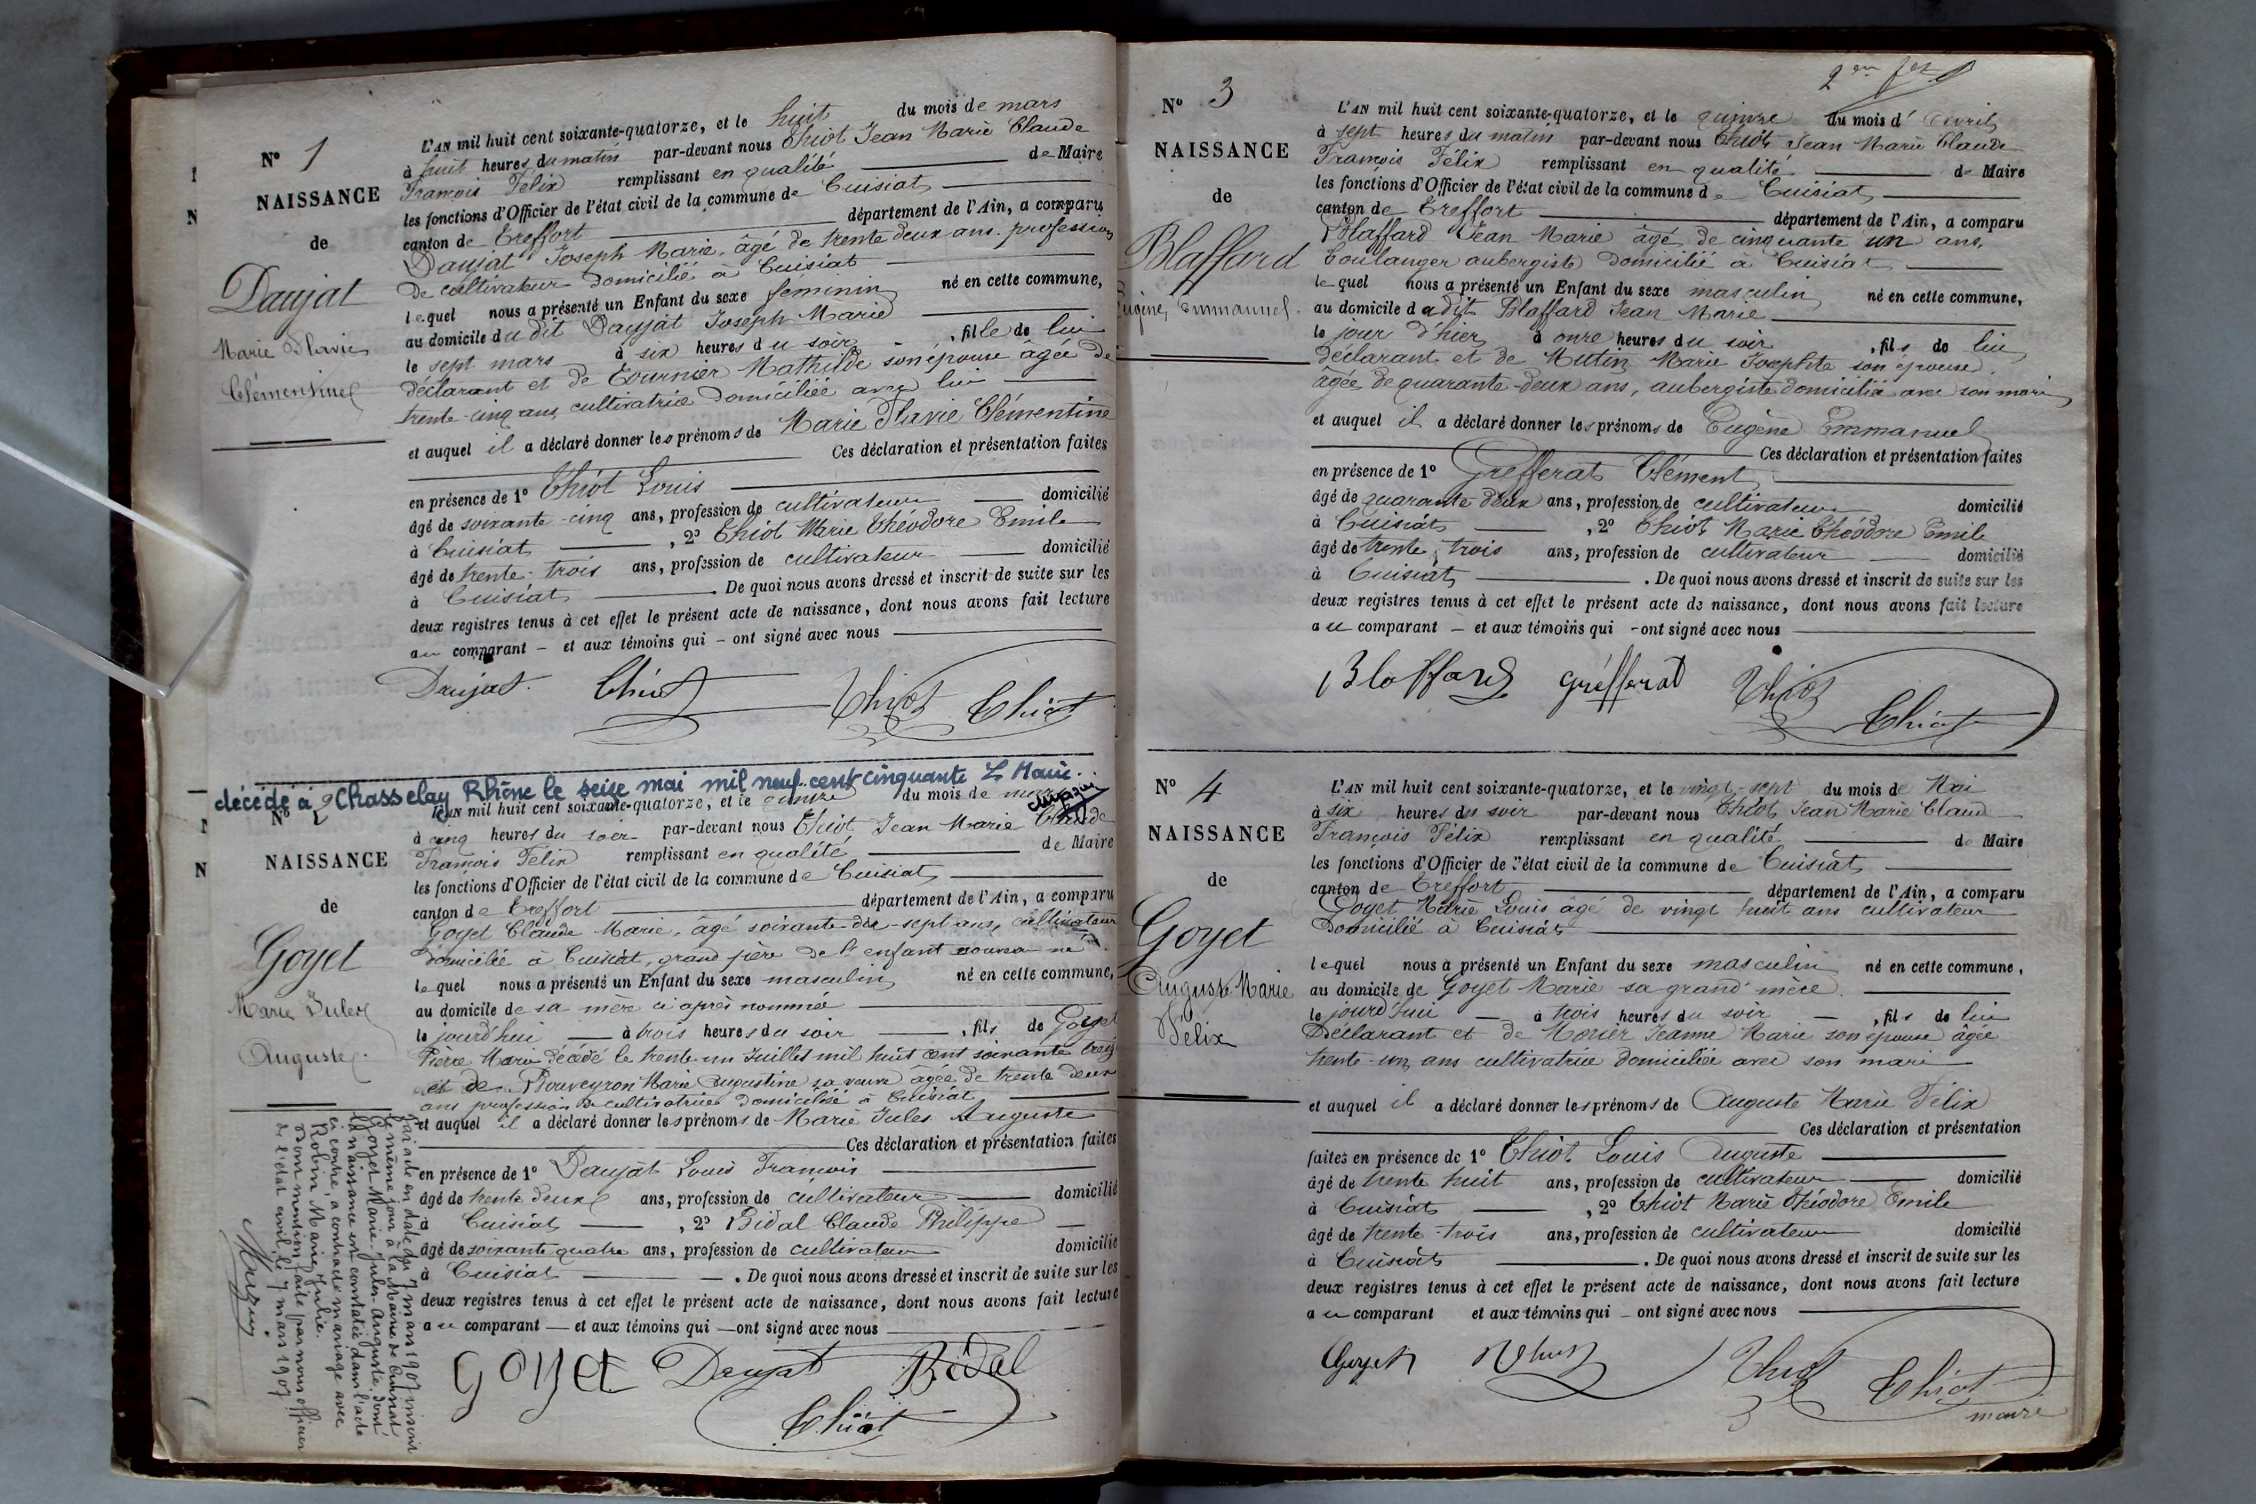 N° 1
NAISSANCE
de
Daujat
Marie Flavie
Clémentine
L'AN mil huit cent soixante-quatorze, et le huit du mois de mars
à huit heures du matin par-devant nous Chiot Jean Marie Claude
François Félix remplissant en qualité de Maire
les fonctions d'Officier de l'état civil de la commune de Cuisiat
canton de Treffort département de l'Ain, a comparu
Daujat Joseph Marie, âgé de trente deux ans. profession
de cultivateur domicilié à Cuisiat
lequel nous a présenté un Enfant du sexe feminin né en cette commune,
au domicile du dit Daujat Joseph Marie
le sept mars à six heures du soir, fille de lui
déclarant et de Tournier Mathilde son épouse âgée de
trente-cinq ans cultivatrice domiciliée avec lui
et auquel il a déclaré donner les prénoms de Marie Flavie Clémentine
Ces déclaration et présentation faites
en présence de 1° Chiot Louis
âgé de soixante-cinq ans, profession de cultivateur domicilié
à Cuisiat, 2° Chiot Marie Théodore Emile
âgé de trente-trois ans, profession de cultivateur domicilié
à Cuisiat. De quoi nous avons dressé et inscrit de suite sur les
deux registres tenus à cet effet le présent acte de naissance, dont nous avons fait lecture
au comparant - et aux témoins qui - ont signé avec nous
Daujat. Chiot Chiot Chiot
décédé à Chasselay Rhône le seize mai mil neuf cent cinquante Le Maire.
N° 2
NAISSANCE
de
Goyet
Marie Jules
Auguste.
L'AN mil huit cent soixante-quatorze, et le quinze du mois de mars
à cinq heures du soir par-devant nous Chiot Jean Marie Claude
François Félix remplissant en qualité de Maire
les fonctions d'Officier de l'état civil de la commune de Cuisiat
canton de Treffort département de l'Ain, a comparu
Goyet Claude Marie, âgé soixante-dix-sept ans, cultivateur
domicilié à Cuisiat, grand père de l'enfant nouveau né
lequel nous a présenté un Enfant du sexe masculin né en cette commune,
au domicile de sa mère ci après nommée
le jourd'hui à trois heures du soir, fils de Goyet
Pierre Marie décédé le trente-un Juillet mil huit cent soixante treize
et de Bouveyron Marie Augustine sa veuve âgée de trente deux
ans profession de cultivatrice domiciliée à Cuisiat
et auquel il a déclaré donner les prénoms de Marie Jules Auguste
Ces déclaration et présentation faites
en présence de 1° Daujat Louis François
âgé de trente deux ans, profession de cultivateur domicilié
à Cuisiat, 2° Bidal Claude Philippe
âgé de soixante quatre ans, profession de cultivateur domicilié
à Cuisiat. De quoi nous avons dressé et inscrit de suite sur les
deux registres tenus à cet effet le présent acte de naissance, dont nous avons fait lecture
au comparant - et aux témoins qui - ont signé avec nous
Goyet Daujat Bidal
Chiot
Par acte en date du 7 mars 1907 inscrit
le même jour à la Mairie de Cuisiat
Goyet Marie Jules Auguste, dont
la naissance est constatée dans l'acte
ci contre, a contracté mariage avec
Robin Marie Julie.
Dont mention faite par nous officier
de l'état civil, le 7 mars 1907
N° 3
NAISSANCE
de
Blaffard
Eugène, Emmanuel.
L'AN mil huit cent soixante-quatorze, et le quinze du mois d'Avril
à sept heures du matin par-devant nous Chiot Jean Marie Claude
François Félix remplissant en qualité de Maire
les fonctions d'Officier de l'état civil de la commune de Cuisiat
canton de Treffort département de l'Ain, a comparu
Blaffard Jean Marie âgé de cinquante un ans,
boulanger aubergiste domicilié à Cuisiat
lequel nous a présenté un Enfant du sexe masculin né en cette commune,
au domicile du dit Blaffard Jean Marie
le jour d'hier à onze heures du soir, fils de lui
déclarant et de Mutin Marie Josephte son épouse,
âgée de quarante-deux ans, aubergiste domiciliée avec son mari
et auquel il a déclaré donner les prénoms de Eugène Emmanuel
Ces déclaration et présentation faites
en présence de 1° Grefferat Clément
âgé de quarante deux ans, profession de cultivateur domicilié
à Cuisiat, 2° Chiot Marie Théodore Emile
âgé de trente-trois ans, profession de cultivateur domicilié
à Cuisiat. De quoi nous avons dressé et inscrit de suite sur les
deux registres tenus à cet effet le présent acte de naissance, dont nous avons fait lecture
au comparant - et aux témoins qui - ont signé avec nous
Blaffard Grefferat Chiot Chiot
N° 4
NAISSANCE
de
Goyet
Auguste Marie
Félix
L'AN mil huit cent soixante-quatorze, et le vingt-sept du mois de Mai
à six heures du soir par-devant nous Chiot Jean Marie Claude
François Félix remplissant en qualité de Maire
les fonctions d'Officier de l'état civil de la commune de Cuisiat
canton de Treffort département de l'Ain, a comparu
Goyet Marie Louis âgé de vingt huit ans cultivateur
Domicilié à Cuisiat
lequel nous a présenté un Enfant du sexe masculin né en cette commune,
au domicile de Goyet Marie sa grand'mère.
le jourd'hui à trois heures du soir, fils de lui
Déclarant et de Morier Jeanne Marie son épouse âgée
trente-un ans cultivatrice domiciliée avec son mari
et auquel il a déclaré donner les prénoms de Auguste Marie Félix
Ces déclaration et présentation
faites en présence de 1° Chiot Louis Auguste
âgé de trente huit ans, profession de cultivateur domicilié
à Cuisiat, 2° Chiot Marie Théodore Emile
âgé de trente-trois ans, profession de cultivateur domicilié
à Cuisiat. De quoi nous avons dressé et inscrit de suite sur les
deux registres tenus à cet effet le présent acte de naissance, dont nous avons fait lecture
au comparant et aux témoins qui - ont signé avec nous
Goyet Chiot Chiot Chiot
maire